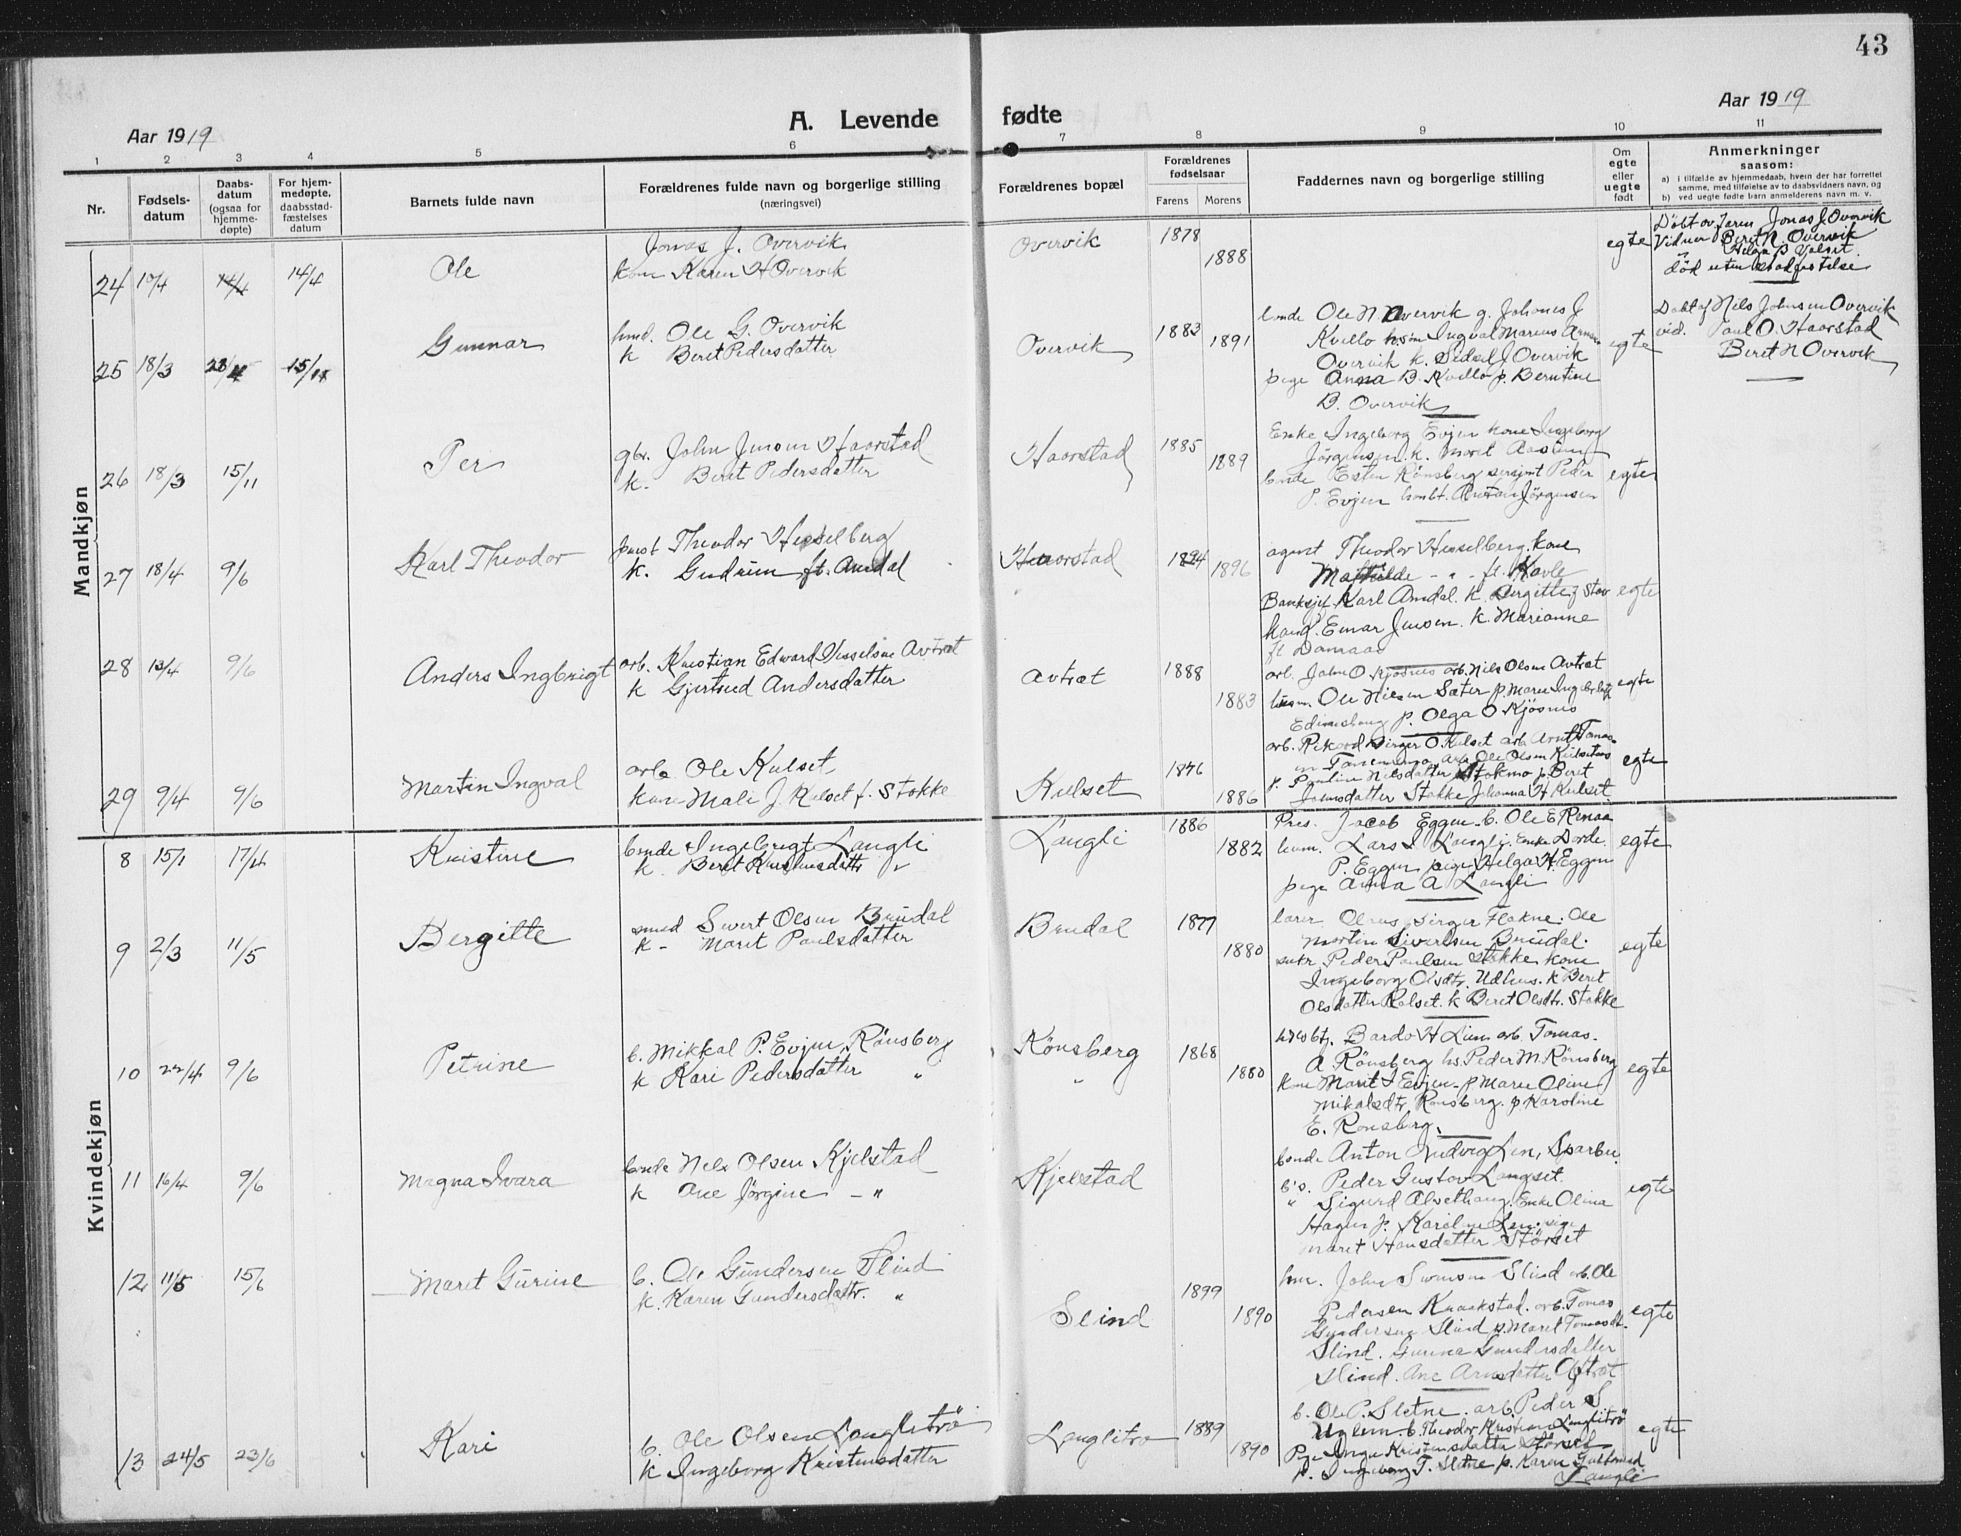 43
Aar 1919
A. Levende fødte
Aar 1919
1 2 3 4 5 6 7 8 9 10 11
Nr.
Fødsels-
datum
Daabs-
datum
(ogsaa for
hjemme-
døpte)
For hjem-
medøpte,
daabsstad-
fæstelses
datum
Barnets fulde navn
Forældrenes fulde navn og borgerlige stilling
(næringsvei)
Forældrenes bopæl
Forældrenes
fødselsaar
Farens Morens
Faddernes navn og borgerlige stilling
Om
egte
eller
uegte
født
Anmerkninger
saasom:
a) i tilfælde av hjemmedaab, hvem der har forrettet
samme, med tilføielse av to daabsvidners navn, og
b) ved uegte fødte barn anmelderens navn m. v.
Mandkjøn
24 10/4 14/4 14/4 Ole
Jonas J. Overvik
kone Karen H Overvik
Overvik 1878 1888
egte
Døbt av faren Jonas J Overvik
Vidner Beret N. Overvik
Helga P
død uten stadfestelse
25 18/3 23/4 15/11 Gunnar
Ole G. Overvik
k Beret Pedersdatter
Overvik 1883 1891
bonde Ole N Overvik g. Johanes J
Kvello Ingval Marius
Overvik k. Sidsel J Overvik
pige Anna B. Kvello p. Berntine
B. Overvik
egte
Døbt af Nils Johnsen Overvik
vid. Paul O. Haarstad
Beret N Overvik
26 18/3 15/11 Per
gbr. John Jensen Haarstad
k. Beret Pedersdatter
Haarstad 1885 1889
Enke Ingeborg Evjen kone Ingeborg
Jørgensen k. Marit
bonde Esten Rønsberg sersjant Peder
P. Evjen Jørgensen
egte
27 18/4 9/6 Karl Theodor
Theodor Hesselberg
k. Gudrun ft. Amdal
Haarstad 1894 1896
agent Theodor Hesselberg. kone
Mathilde - " - ft. Kavle
Banksjef Karl Amdal. k. Birgitte f Stav
hand. Einar Jensen. k. Marianne
ft Damaas
egte
28 13/4 9/6 Anders Ingbrigt
arb. Kristian Edward Nisselsen Avtrøt
k Gjertrud Andersdatter
Avtrøt 1888 1883
arb. John O. Kjøsnes arb. Nils Olsen Avtrøt
Ole Nilsen Sæter p. Maren
p. Olga O Kjøsnes
egte
29 9/4 9/6 Martin Ingval
arb. Ole Kulset
kone Mali J. Kulset f. Stokke
Kulset 1876 1886
arb. Rikard Birger O. Kulset arb. Arnt
arb Ole Olsen
k. Pauline Nilsdatter Stokmo p. Beret
Johnsdatter Stokke Johanna H Kulset.
egte
Kvindekjøn
8 15/1 17/4 Kristine
bonde Ingebrigt Langli
k. Beret "
Langli 1886 1882
Pres. Jacob Eggen. b. Ole E Renaa
Lars I Langli. Enke Dorde
P. Eggen pige Helga H. Eggen
pige Anna A Langli
egte
9 2/3 11/5 Bergitte
smed Sivert Olsen Brudal
k - Marit Paulsdatter
Brudal 1877 1880
lærer Olaus Birger Flakne. Ole
Martin Sivertsen Brudal.
Peder Paulsen Stokke kone
Ingeborg Olsdtr. Udhus. k Beret
Olsdatter Kulset. k Beret Olsdtr. Stokke
egte
10 22/4 9/6 Petrine
b. Mikkal P. Evjen Rönsberg
k Kari Pedersdatter "
Rönsberg " 1868 1880
Bardo H Lium arb. Tomas.
A Rønsberg hs. Peder M. Rønsberg
kone Marit I Evjen. p Maren Oline
Mikalsdtr. Rønsberg. p Karoline
E. Rønsberg.
egte
11 16/4 9/6 Magna Ivara
bonde Nels Olsen Kjelstad
k Ane Jørgine - "
Kjelstad
bonde Anton Ludvig Lien, Sparbu
b.s. Peder Gustav Langset.
" Sigurd Alsethaug. Enke Olina
Hagen p. Karoline Lien. pige
Maret Hansdatter Störset
egte
12 11/5 15/6 Maret Gurine
b. Ole Gundersen Slind
k. Karen Gundersdatr. "
Slind 1899 1890
John Svensen Slind arb. Ole
Pedersen Kraakstad. arb. Tomas
Gundersen Slind p. Maret Tomasdt.
Slind. Gunna Gundersdatter
Slind. Ane Arnsdatter Aftrøt
egte
13 24/5 23/6 Kari
b. Ole Olsen Langlitrö
k Ingeborg Kristensdatter
Langlitrø 1889 1890
b. Ole P. Sletne. arb. Peder S
Uglem. b. Theodor Kristiansen Langlitrö
Pige Inga Kristensdatter Størset
p. Ingeborg T. Sletne p. Karen
Langli
egte